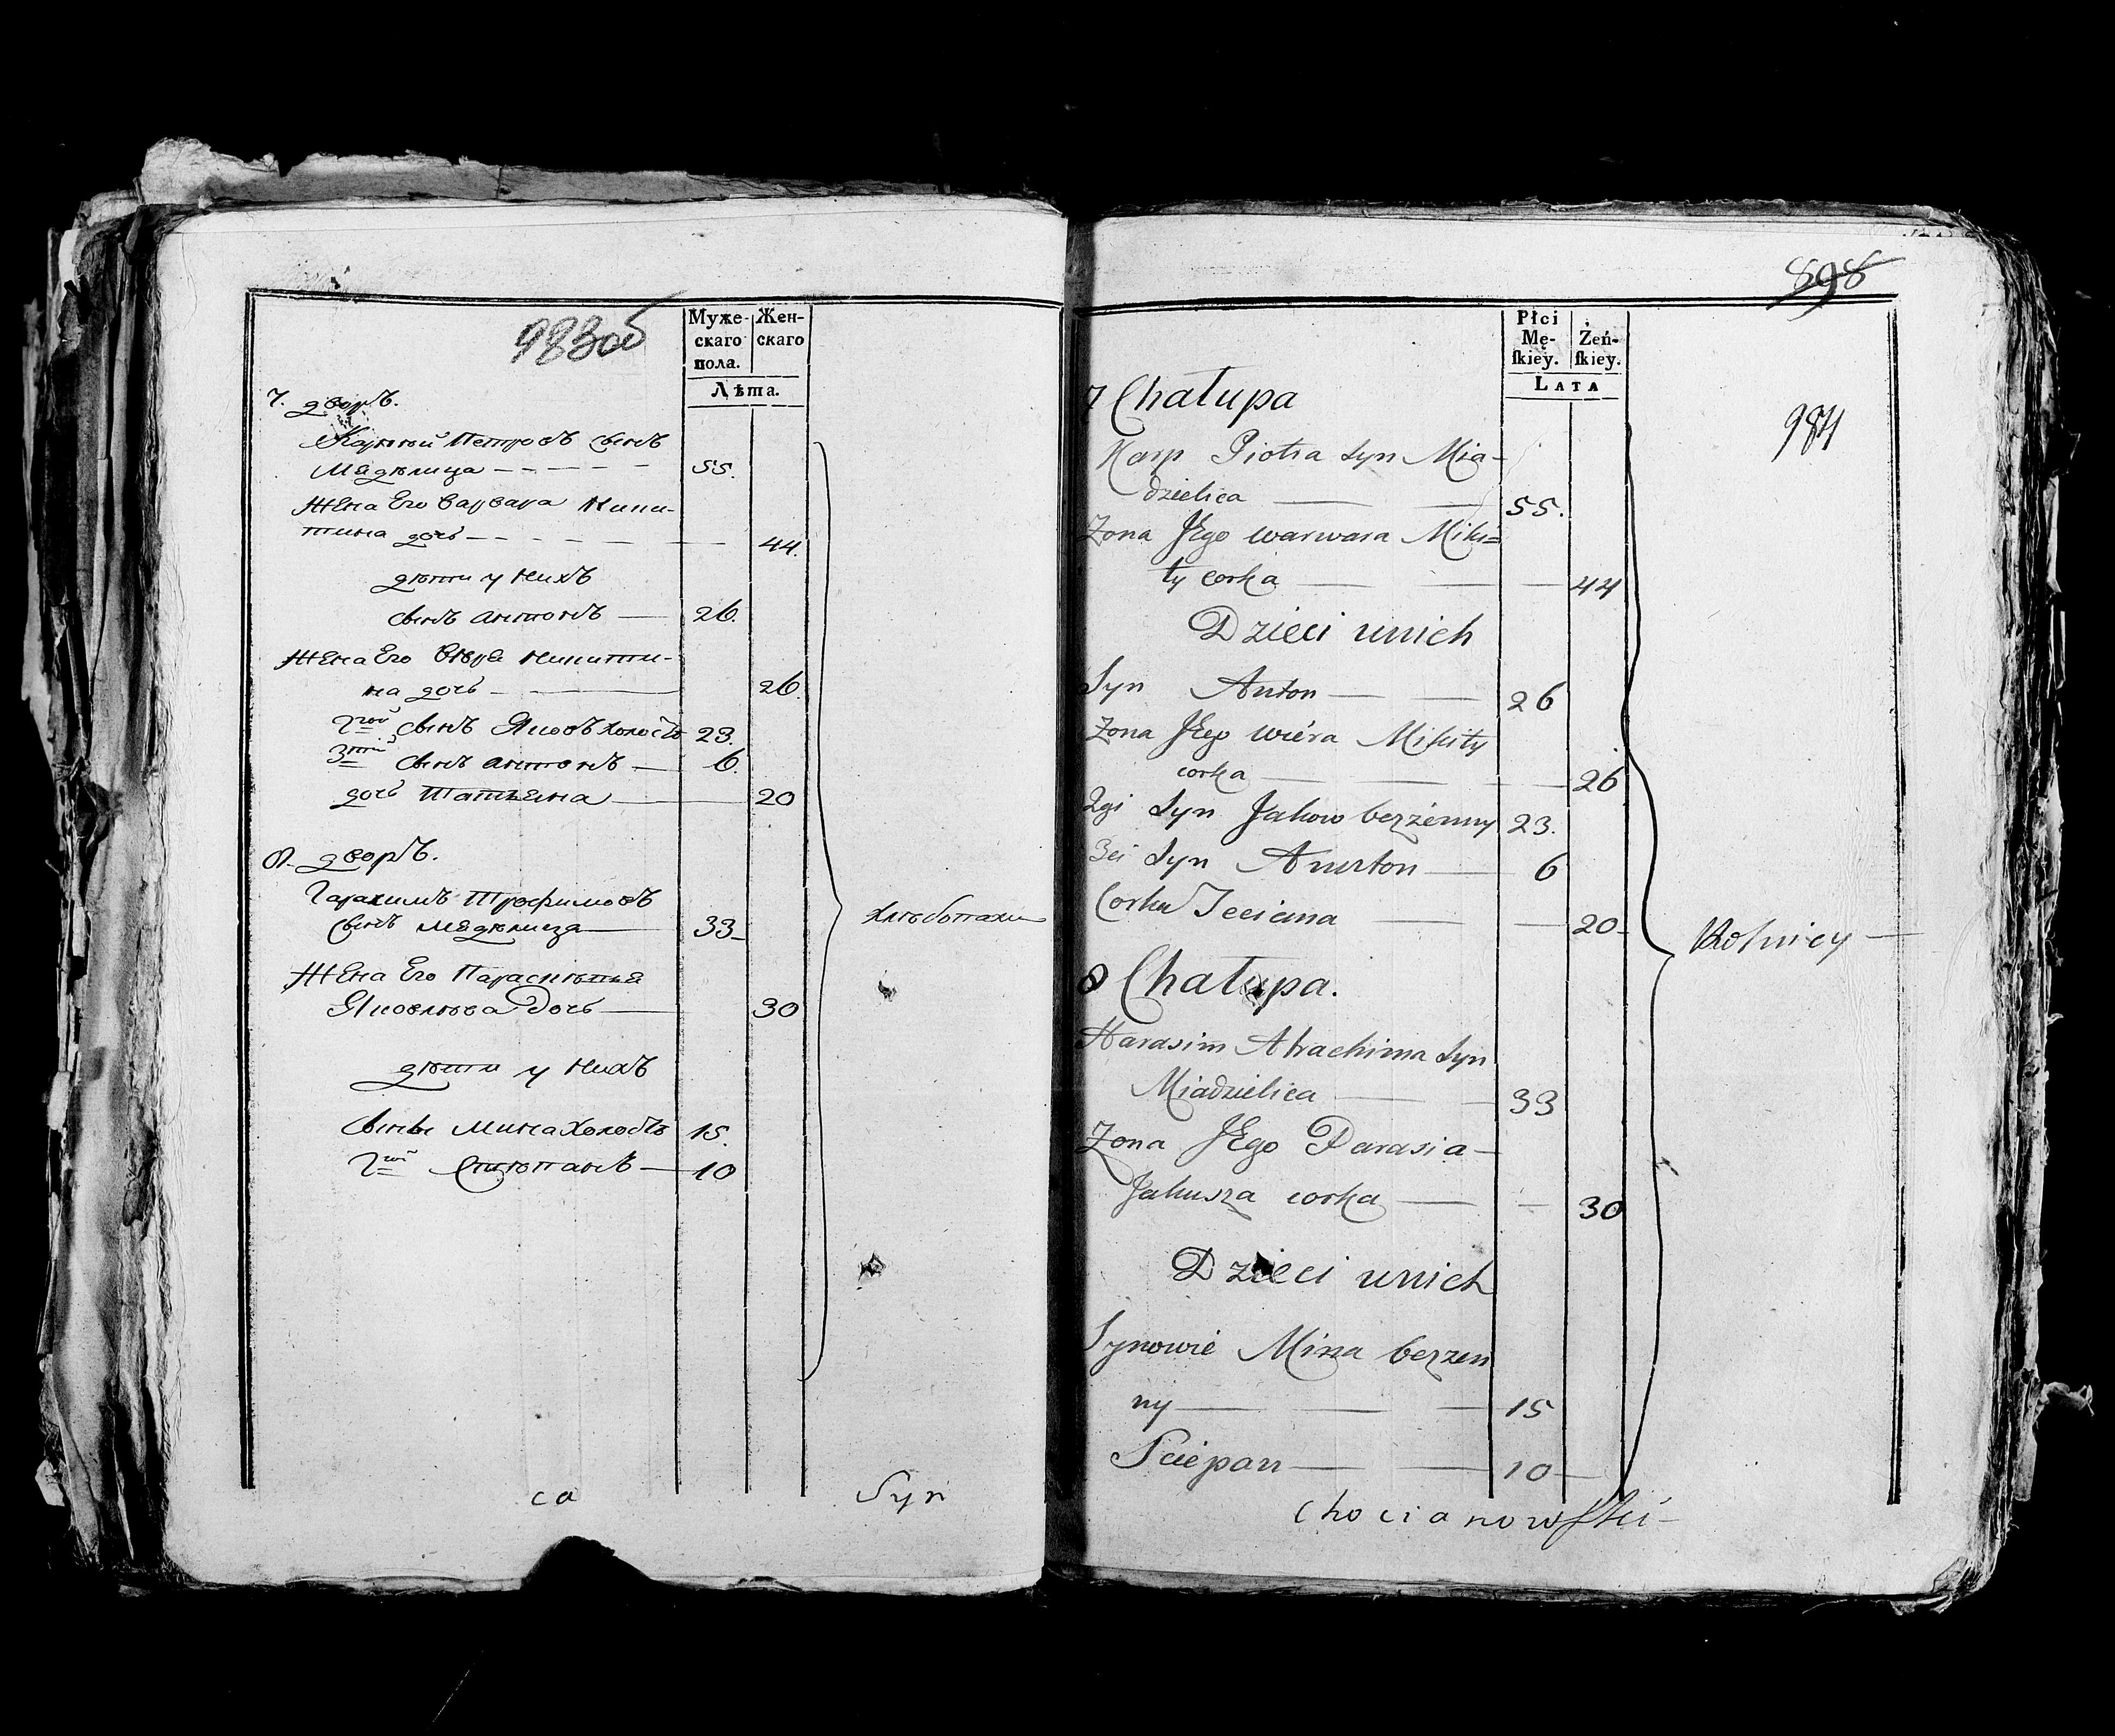 983об
Муже-
скаго
пола.
Жен-
скаго
Лѣта.
7. дворъ.
Карпъ Петровъ сынъ
Мядѣлица 55.
Жена Его Варвара Ники-
тина дочь 44.
дѣти у нихъ
сынъ антонъ 26.
Жена Его Вѣра Никити-
на дочь 26.
2гой сынъ Яковъ холостъ 23.
3тій сынъ антонъ 6.
дочь Татьяна 20
8. дворъ.
Гарахимъ Трофимовъ
сынъ мядѣлица 33
Жена Его Параскѣвья
Яковлева Дочь 30
дѣти у нихъ
сыны Мина холостъ 15.
2гой Стѣпанъ 10
хлѣбопахи
са
Syn
898
984
Płci
Mę-
ſkiey.
Żeń-
ſkiey.
LATA
7 Chałupa
Karp Piotra syn Mia-
dzielica 55.
Zona JEgo warwara Miki=
ty corka 44
Dzieci unich
Syn Anton 26
Zona JEgo wiéra Mikity
corka 26
2gi syn Jakow bezżenny 23.
3ci syn Anton 6
Corka Teciana 20
8 Chałupa.
Harasim Atrachima syn
Miadzielica 33
Zona JEgo Parasia
Jakusza corka 30
Dzieci unich
Synowie Mina bezzen
ny 15
Sciepan 10
Rolnicy
Chocianowſki